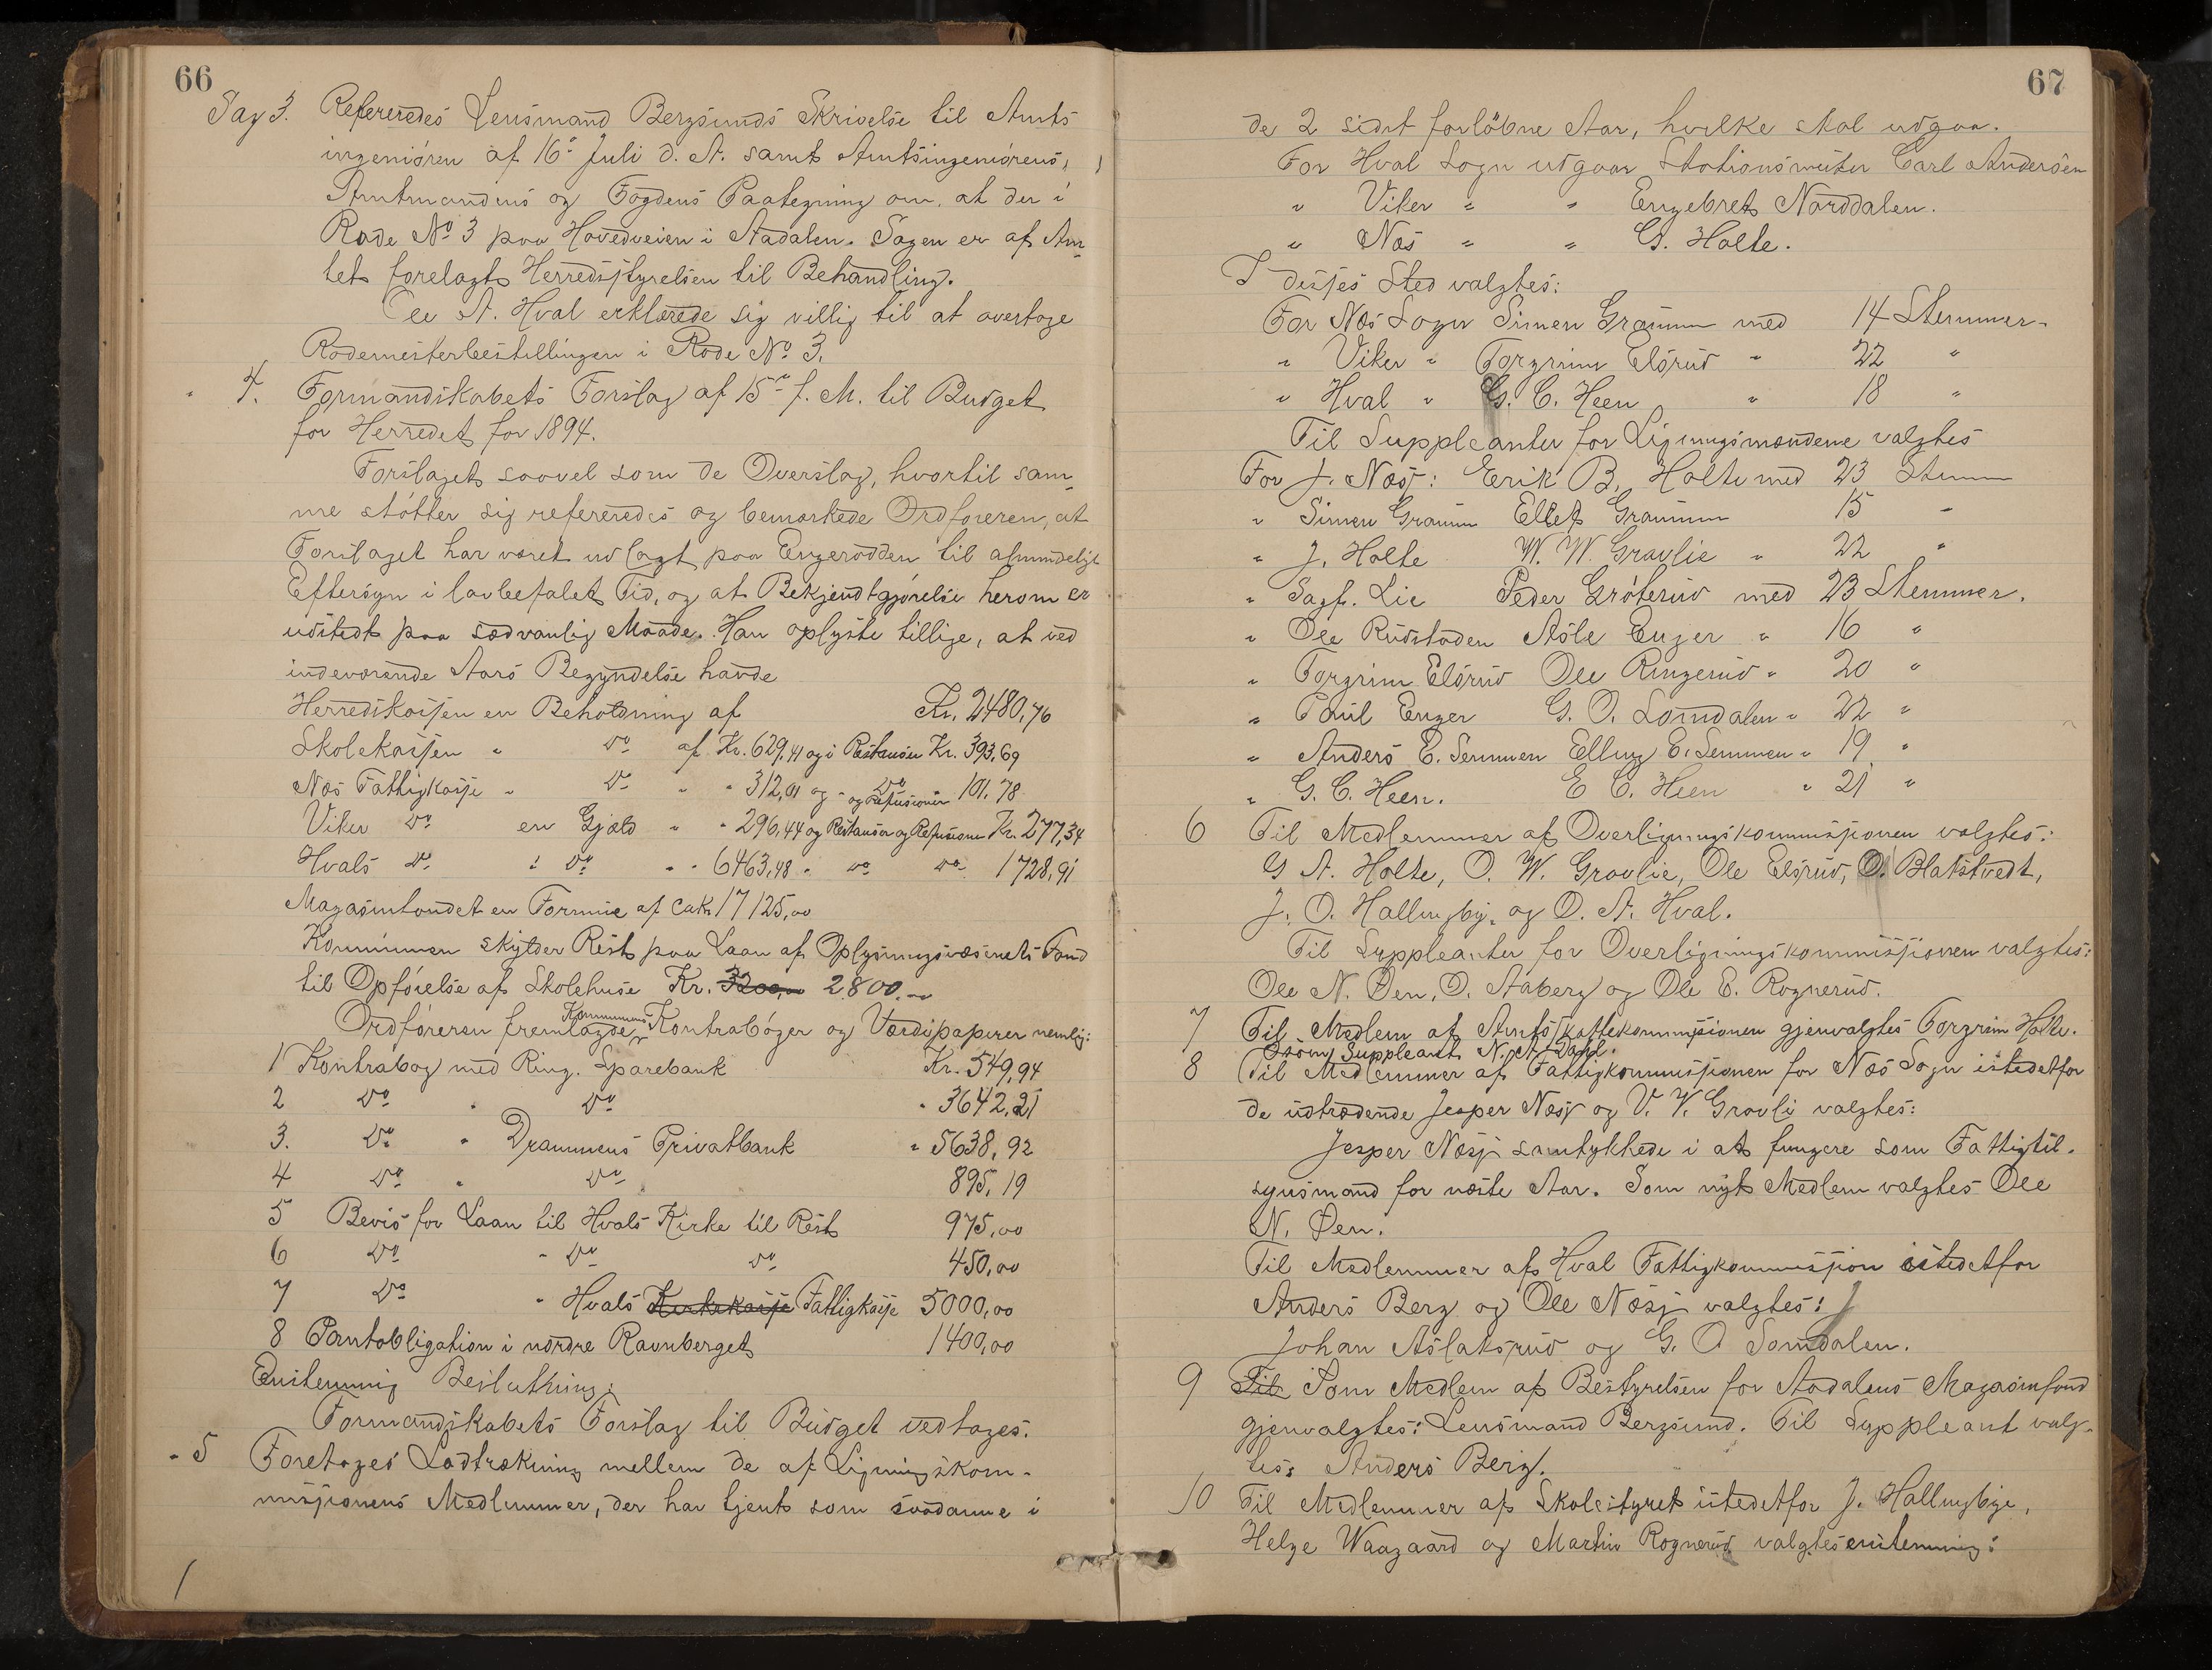 66
Sag 3. Refereredes Lensmand Bergsunds Skrivelse til Amts
ingeniøren af 16de Juli d. A. samt Amtsingeniørens,
Amtmandens og Fogdens Paategning om, at der i
Rode No 3 paa Hovedveien i Aadalen. Sagen er af Am
tet forelagt Herredsstyrelsen til Behandling.
Ole A. Hval erklærede sig villig til at overtage
Rodemesterbestillingen i Rode No 3.
" 4. Formandskabets Forslag af 15de f. M. til Budget
for Herredet for 1894.
Forslaget saavel som de Overslag, hvortil sam
me støtter sig refereredes og bemærkede Ordføreren, at
Forslaget har været udlagt paa Engerodden til almindeligt
Eftersyn i lovbefalet Tid, og at Bekjendtgjørelse herom er
udstedt paa sædvanlig Maade. Han oplyste tillige, at ved
indeværende Aars Begyndelse havde
Herredskassen en Beholdning af Kr. 2480,76
Skolekassen " Do af Kr. 629,41 og i Restanser Kr. 393,69
Næs Fattigkasse " Do " " 312,01 og " Do og Refusioner 101,78
Viker Do en Gjæld " " 296,44 og Restanser og Refusioner Kr. 277,34
Hvals Do " Do " " 6463,48 " Do Do 1728,91
Magasinfondet en Formue af ca Kr 17125,00
Kommunen skylder Rest paa Laan af Oplysningsvæsenets Fond
til Opførelse af Skolehuse Kr. 3200,00 2800,00
Ordføreren fremlagde Kommunens Kontrabøger og Værdipapirer nemlig:
1 Kontrabog med Ring. Sparebank Kr. 549,94
2 Do " Do " 3642,21
3. Do " Drammens Privatbank " 5638,92
4 Do " Do 895,19
5 Bevis for Laan til Hvals Kirke til Rest 975,00
6 Do " Do Do 450,00
7 Do " Hvals Kirkekasse Fattigkasse 5000,00
8 Pantobligation i nordre Ravnberget 1400,00
Enstemmig Beslutning:
Formandskabets Forslag til Budget vedtages.
" 5 Foretages Lodtrækning mellem de af Ligningskom-
missionens Medlemmer, der har tjent som saadanne i
67
de 2 sidst forløbne Aar, hvilke skal udgaa.
For Hval Sogn udgaar Stationsmester Carl Andersen
" Viker " " Engebret Norddalen.
" Næs " " G. Holte.
I disses Sted valgtes:
For Næs Sogn Simen Gramm med 14 Stemmer.
" Viker " Torgrim Elsrud " 22 "
" Hval " G. C. Heen " 18 "
Til Suppleanter for Ligningsmændene valgtes
For J. Næss: Erik B. Holte med 23 Stemm
" Simen Gramm Ellef Gramm 15 "
" J. Holte W. W. Gravlie " 22 "
" Sagf. Lie Peder Grøterud med 23 Stemmer.
" Ole Rudstaden Asle Enger " 16 "
" Torgrim Elsrud Ole Ringerud " 20 "
" Paul Enger G. O. Somdalen " 22 "
" Anders E. Semmen Elling E. Semmen " 19 "
" G. C. Heen. E C. Heen " 21 "
6 Til Medlemmer af Overligningskommissionen valgtes:
G A. Holte, O. W. Gravlie, Ole Elsrud, O. Blakstvedt,
J. O. Hallingby, og O. A. Hval.
Til Suppleanter for Overligningskommissionen valgtes:
Ole N. Øen, O. Aaberg og Ole E. Rognerud.
7 Til Medlem af Amtsskattekommissionen gjenvalgtes Torgrim Holte.
som Suppleant N. A. Dahl.
8 Til Medlemmer af Fattigkommissionen for Næs Sogn istedetfor
de udtrædende Jesper Næss og V. V. Gravli valgtes:
Jesper Næss samtykkede i at fungere som Fattigtil-
synsmand for næste Aar. Som nyt Medlem valgtes Ole
N. Øen.
Til Medlemmer af Hval Fattigkommission istedetfor
Anders Berg og Ole Næss valgtes:
Johan Aslaksrud og G. O Somdalen.
9 Til Som Medlem af Bestyrelsen for Aadalens Magasinfond
gjenvalgtes: Lensmand Bergsund. Til Suppleant valg-
tes: Anders Berg.
10 Til Medlemmer af Skolestyret istedetfor J. Hallingbye,
Helge Waagaard og Martin Rognerud valgtes enstemmig: